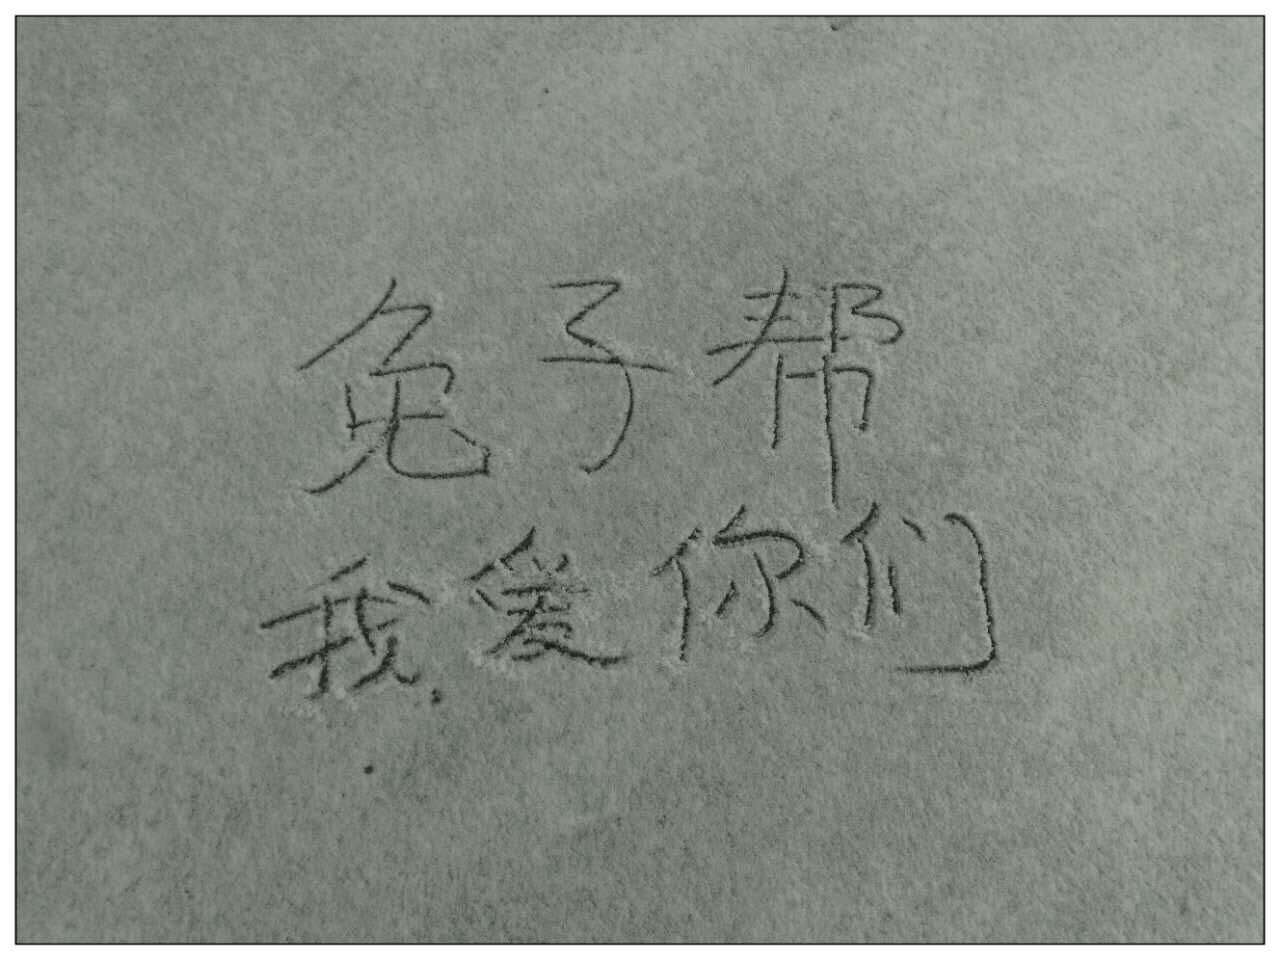 兔子帮
我爱你们